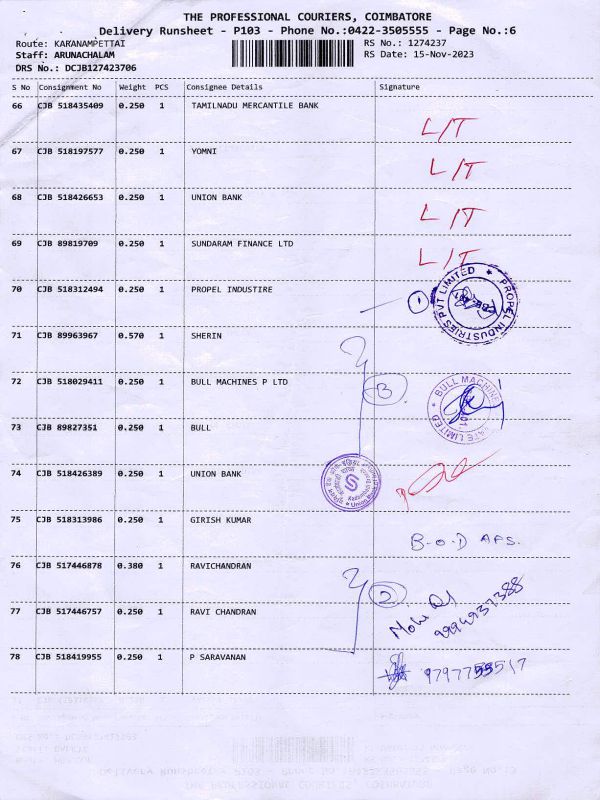 THE PROFESSIONAL COURIERS, COIMBATORE
Delivery Runsheet - P103 - Phone No.:0422-3505555 - Page No.:6
Route: KARANAMPETTAI RS No.: 1274237
Staff: ARUNACHALAM RS Date: 15-Nov-2023
DRS No.: DCJB127423706
S No Consignment No Weight PCS Consignee Details Signature
66 CJB 518435409 0.250 1 TAMILNADU MERCANTILE BANK
L/T
67 CJB 518197577 0.250 1 YOMNI
L/T
68 CJB 518426653 0.250 1 UNION BANK
L/T
69 CJB 89819709 0.250 1 SUNDARAM FINANCE LTD
L/T
70 CJB 518312494 0.250 1 PROPEL INDUSTIRE
1
PROPEL INDUSTRIES PVT LIMITED
71 CJB 89963967 0.570 1 SHERIN
72 CJB 518029411 0.250 1 BULL MACHINES P LTD
3
BULL MACHINE
LIMITED
73 CJB 89827351 0.250 1 BULL
74 CJB 518426389 0.250 1 UNION BANK
75 CJB 518313986 0.250 1 GIRISH KUMAR
B-O-D APS.
76 CJB 517446878 0.380 1 RAVICHANDRAN
2
77 CJB 517446757 0.250 1 RAVI CHANDRAN
9994937388
78 CJB 518419955 0.250 1 P SARAVANAN